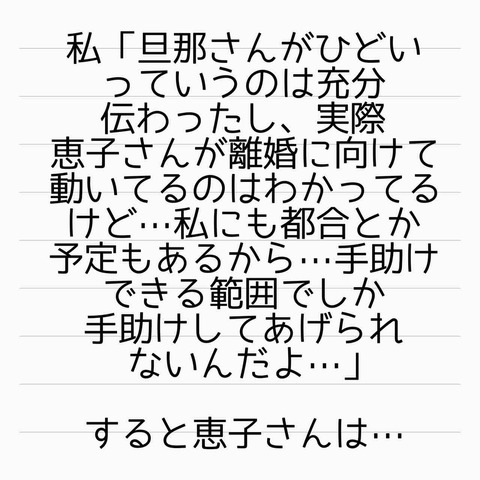 私「旦那さんがひどい
っていうのは充分
伝わったし、実際
恵子さんが離婚に向けて
動いてるのはわかってる
けど…私にも都合とか
予定もあるから…手助け
できる範囲でしか
手助けしてあげられ
ないんだよ…」
すると恵子さんは…